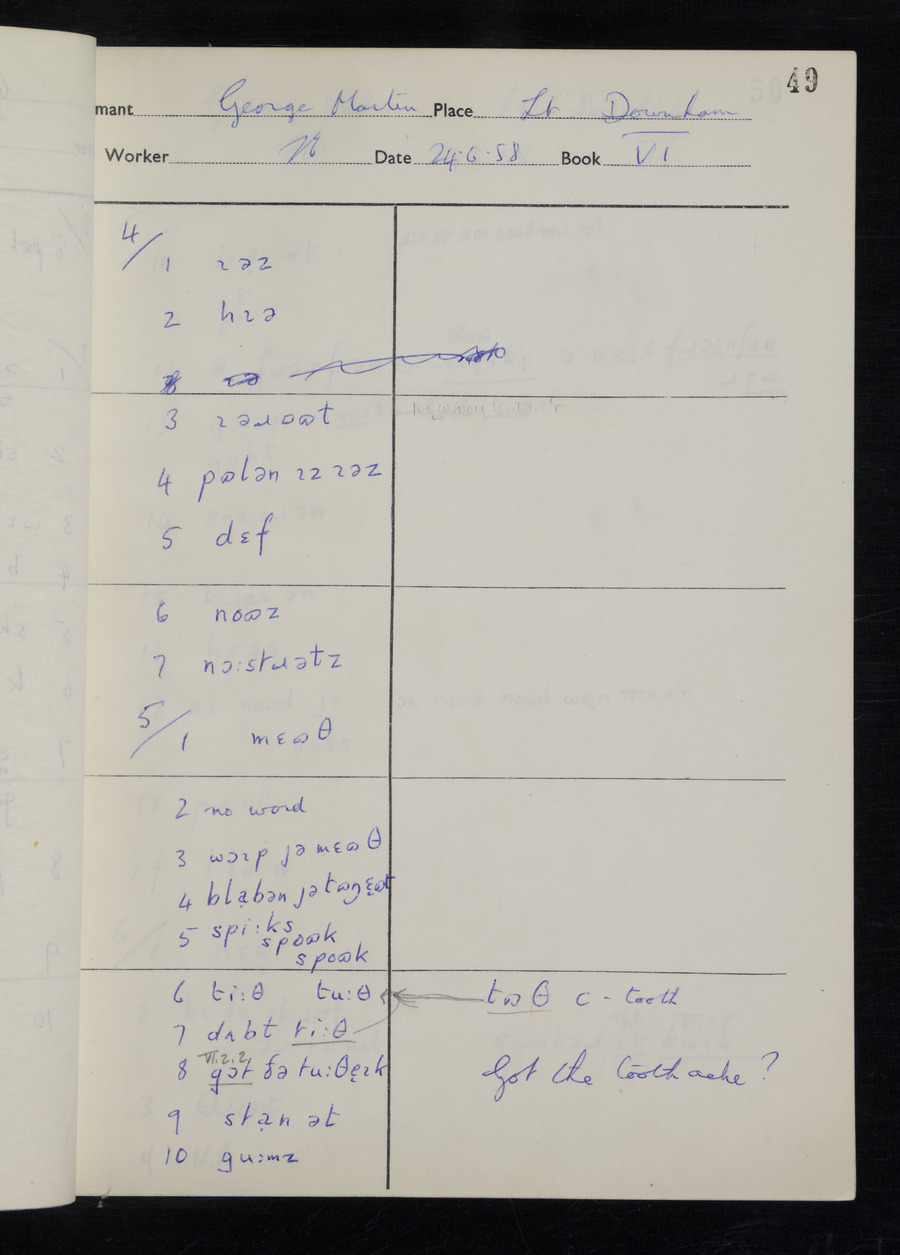 49
mant George Martin Place Lt. Downham
Worker Date 24·6·58 Book VI
4/
1 ɪəz
2 hɪə
3 ɪəɹɷɷt
4 pɷlən ɪz ɪəz
5 dɛf
6 noɷz
7 nɔ:stɹətz
5/
1 mɛɷθ
2 no word
3 wɔɪp jə mɛɷθ
4 blạbən jə
5 spi:ks
spoɷk
spoɷk
6 ti:θ tu:θ tɷθ c - tooth
7 dʌbt ti:θ
VI.2.2
8 gɔt ðə tu:θẹɪk Got the toothache?
9 stạn ət
10 gu:mz